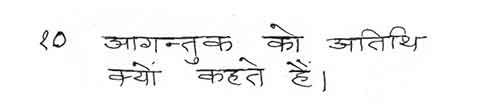 १० आगन्तुक को अतिथि
क्यों कहते हैं।